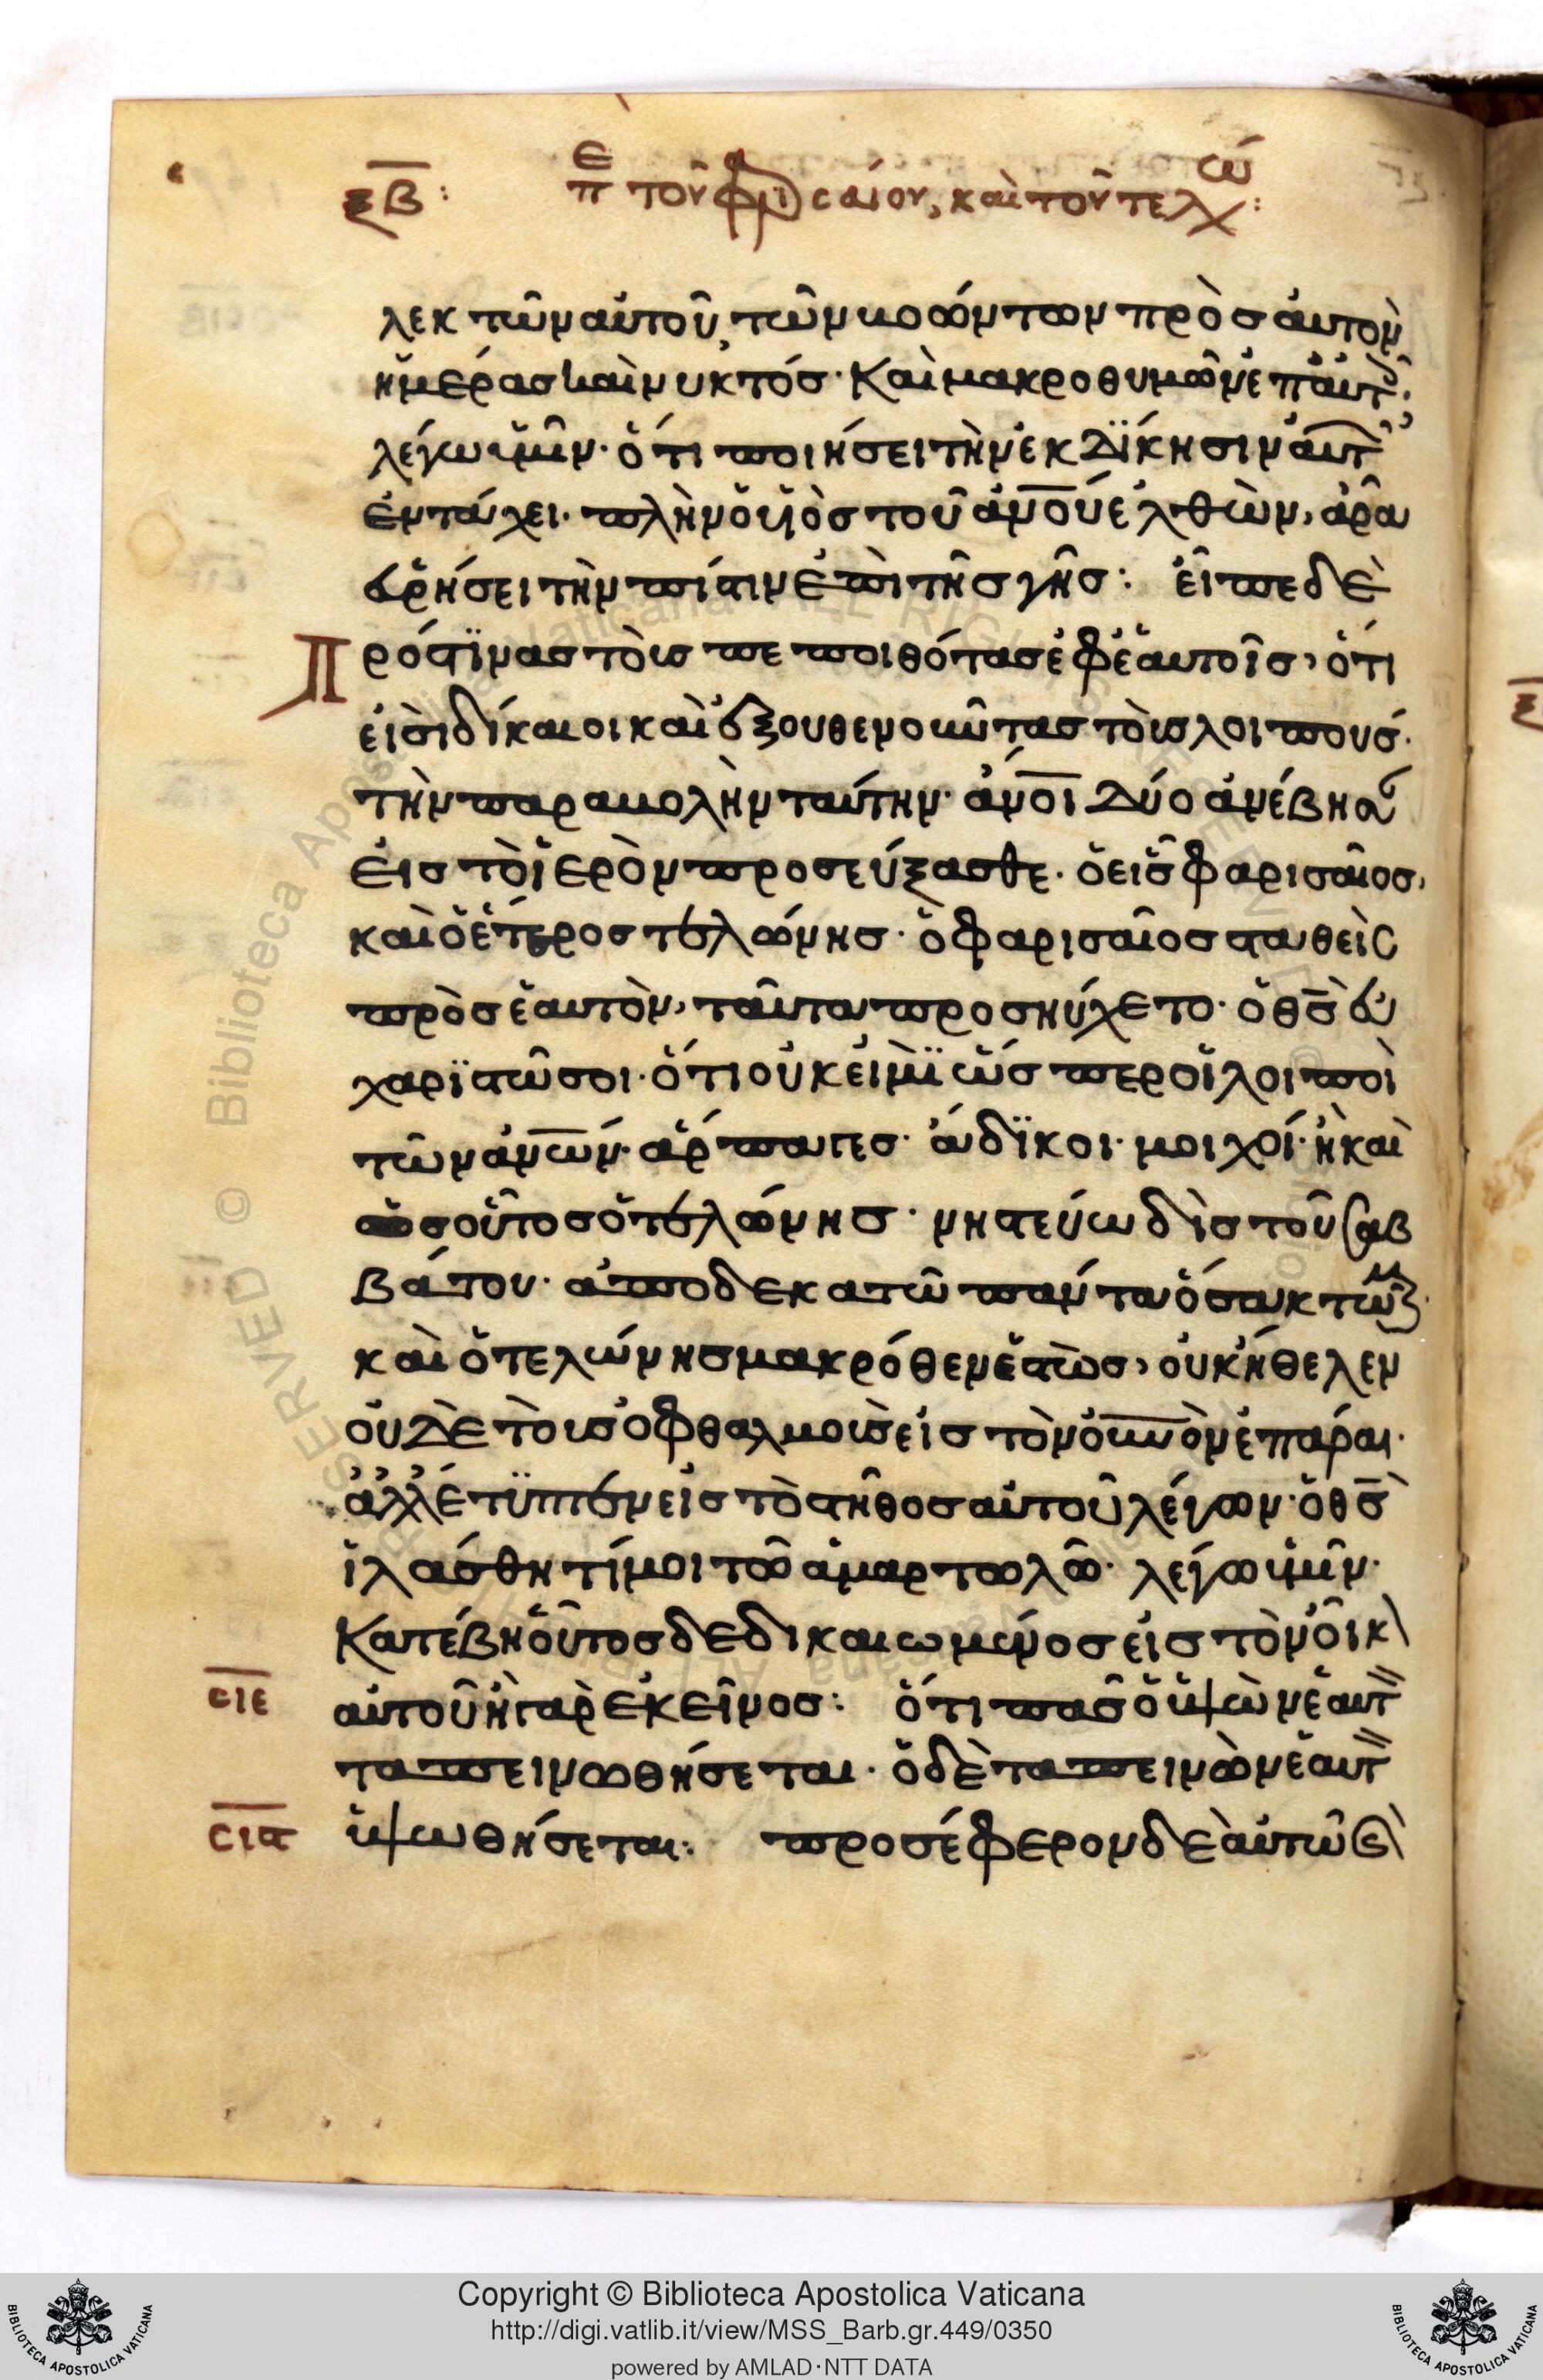 ξβ: πε τοῦ φαρισαίου, καὶ τοῦ τελώ:
λεκτῶν αὐτοῦ, τῶν βοώντων πρὸς αὐτὸν
ἡμέρας καὶ νυκτός· Καὶ μακροθυμῶν ἐπ αὐτ·
λέγω ὑμῖν· ὅτι ποιήσει τὴν ἐκδίκησιν αὐτ
ἐν τάχει· πλὴν ὁ υἱὸς τοῦ ἀνου ἐλθὼν, ἆρα
εὑρήσει τὴν πίστιν ἐπὶ τῆς γῆς: εἶπε δὲ
Πρός τινας τοὺς πεποιθότας ἐφ ἑαυτοῖς, ὅτι
εἰσὶ δίκαιοι καὶ ἐξουθενοῦντας τοὺς λοιπούς·
τὴν παραβολὴν ταύτην· ἄνοι δύο ἀνέβησα
εἰς τὸ ἱερὸν προσεύξασθε· ὁ εἷς φαρισαῖος,
καὶ ὁ ἕτερος τελώνης· ὁ φαρισαῖος σταθεὶς
πρὸς ἑαυτὸν, ταῦτα προσηύχετο· ὁ θς εὐ
χαριστῶ σοι· ὅτι οὐκ εἰμὶ ὥσπερ οἱ λοιποὶ
τῶν ἀνων· ἅρπαγες· ἄδικοι· μοιχοί· ἢ καὶ
ὡς οὗτος ὁ τελώνης· νηστεύω δὶς τοῦ σαβ
βάτου· ἀποδεκατῶ πάντα ὅσα κτῶμ·
καὶ ὁ τελώνης μακρόθεν ἑστὼς, οὐκ ἤθελεν
οὐδὲ τοὺς ὀφθαλμοὺς εἰς τὸν οὐνον ἐπάραι·
ἀλλ ἔτυπτεν εἰς τὸ στῆθος αὐτοῦ λέγων· ὁ θς
ἱλάσθητί μοι τῶ ἁμαρτωλῶ· λέγω ὑμῖν·
Κατέβη οὗτος δεδικαιωμένος εἰς τὸν οἶκ
σιε αὐτοῦ ἢ γὰρ ἐκεῖνος: ὅτι πᾶς ὁ ὑψῶν ἑαυτ
ταπεινωθήσεται· ὁ δὲ ταπεινῶν ἑαυτ
σις ὑψωθήσεται: προσέφερον δὲ αὐτῶ κ
Copyright © Biblioteca Apostolica Vaticana
http://digi.vatlib.it/view/MSS_Barb.gr.449/0350
powered by AMLAD·NTT DATA
BIBLIOTECA APOSTOLICA VATICANA
BIBLIOTECA APOSTOLICA VATICANA